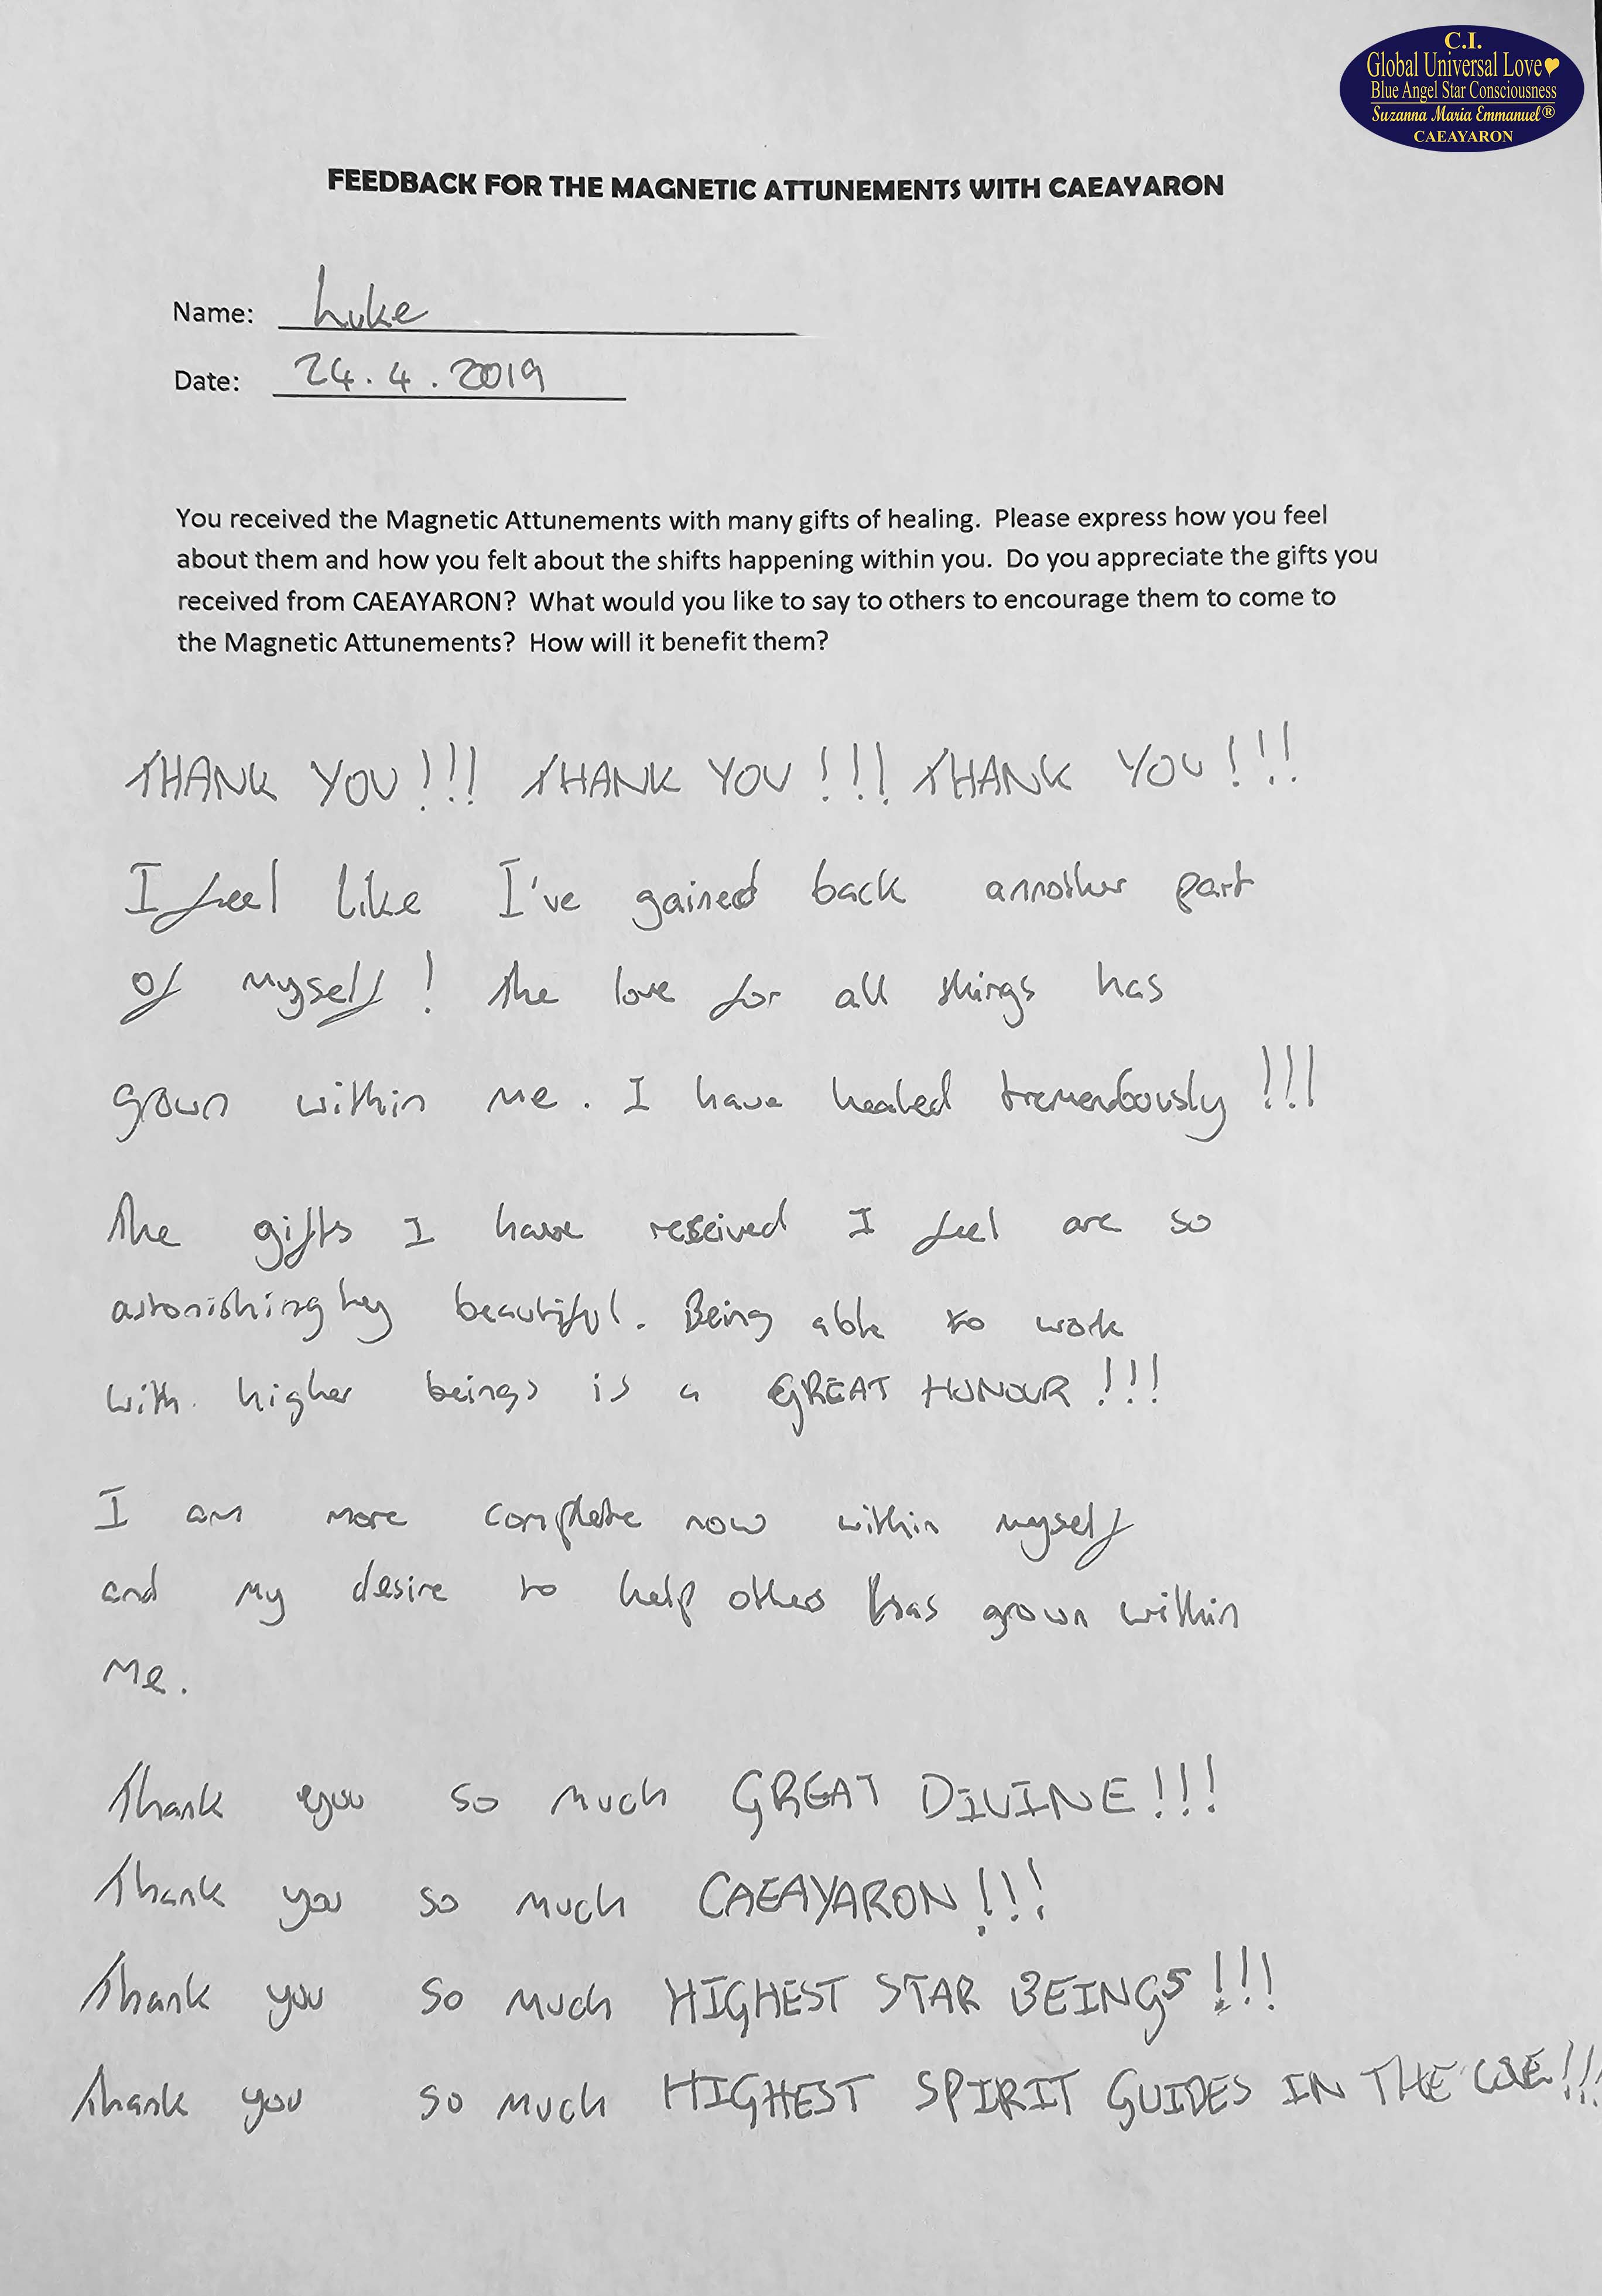 C.I.
Global Universal Love
Blue Angel Star Consciousness
Suzanna Maria Emmanuel®
CAEAYARON
FEEDBACK FOR THE MAGNETIC ATTUNEMENTS WITH CAEAYARON
Name: Luke
Date: 24.4.2019
You received the Magnetic Attunements with many gifts of healing. Please express how you feel
about them and how you felt about the shifts happening within you. Do you appreciate the gifts you
received from CAEAYARON? What would you like to say to others to encourage them to come to
the Magnetic Attunements? How will it benefit them?
THANK YOU!!! THANK YOU!!! THANK YOU!!!
I feel like I've gained back annother part
of myself! The love for all things has
grown within me. I have healed tremendously!!!
The gifts I have received I feel are so
astonishingley beautiful. Being able to work
with higher beings is a GREAT HONOUR!!!
I am more complete now within myself
and my desire to help others has grown within
me.
Thank you so much GREAT DIVINE!!!
Thank you so much CAEAYARON!!!
Thank you so much HIGHEST STAR BEINGS!!!
Thank you so much HIGHEST SPIRIT GUIDES IN THE !!!